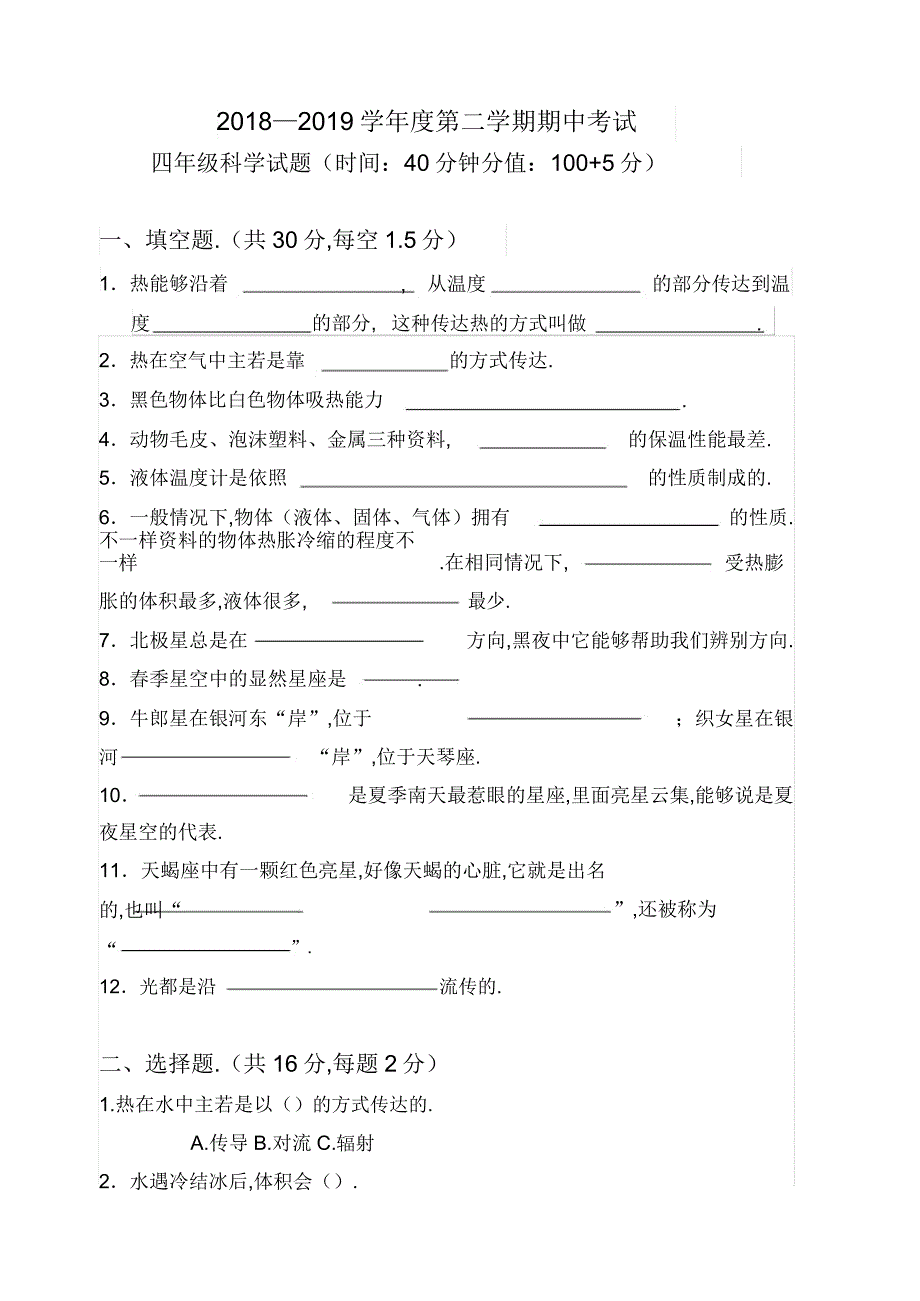 2018—2019 学年度第二学期期中考试
四年级科学试题（时间：40 分钟分值：100+5 分）
一、填空题.（共 30 分,每空 1.5 分）
1．热能够沿着 ____________, 从温度 ____________ 的部分传达到温
度____________的部分, 这种传达热的方式叫做 ____________.
2．热在空气中主若是靠 ____________的方式传达.
3．黑色物体比白色物体吸热能力 ____________.
4．动物毛皮、泡沫塑料、金属三种资料, ____________ 的保温性能最差.
5．液体温度计是依照 ____________ 的性质制成的.
6．一般情况下,物体（液体、固体、气体）拥有 ____________ 的性质.
不一样资料的物体热胀冷缩的程度不
一样 .在相同情况下, ____________ 受热膨
胀的体积最多,液体很多, ____________ 最少.
7．北极星总是在 ____________ 方向,黑夜中它能够帮助我们辨别方向.
8．春季星空中的显然星座是 ____________.
9．牛郎星在银河东“岸”,位于 ____________ ；织女星在银
河____________ “岸”,位于天琴座.
10．____________ 是夏季南天最惹眼的星座,里面亮星云集,能够说是夏
夜星空的代表.
11．天蝎座中有一颗红色亮星,好像天蝎的心脏,它就是出名
的,也叫“____________ ____________”,还被称为
“____________”.
12．光都是沿 ____________流传的.
二、选择题.（共 16 分,每题 2 分）
1.热在水中主若是以（）的方式传达的.
A.传导 B.对流 C.辐射
2．水遇冷结冰后,体积会（）.